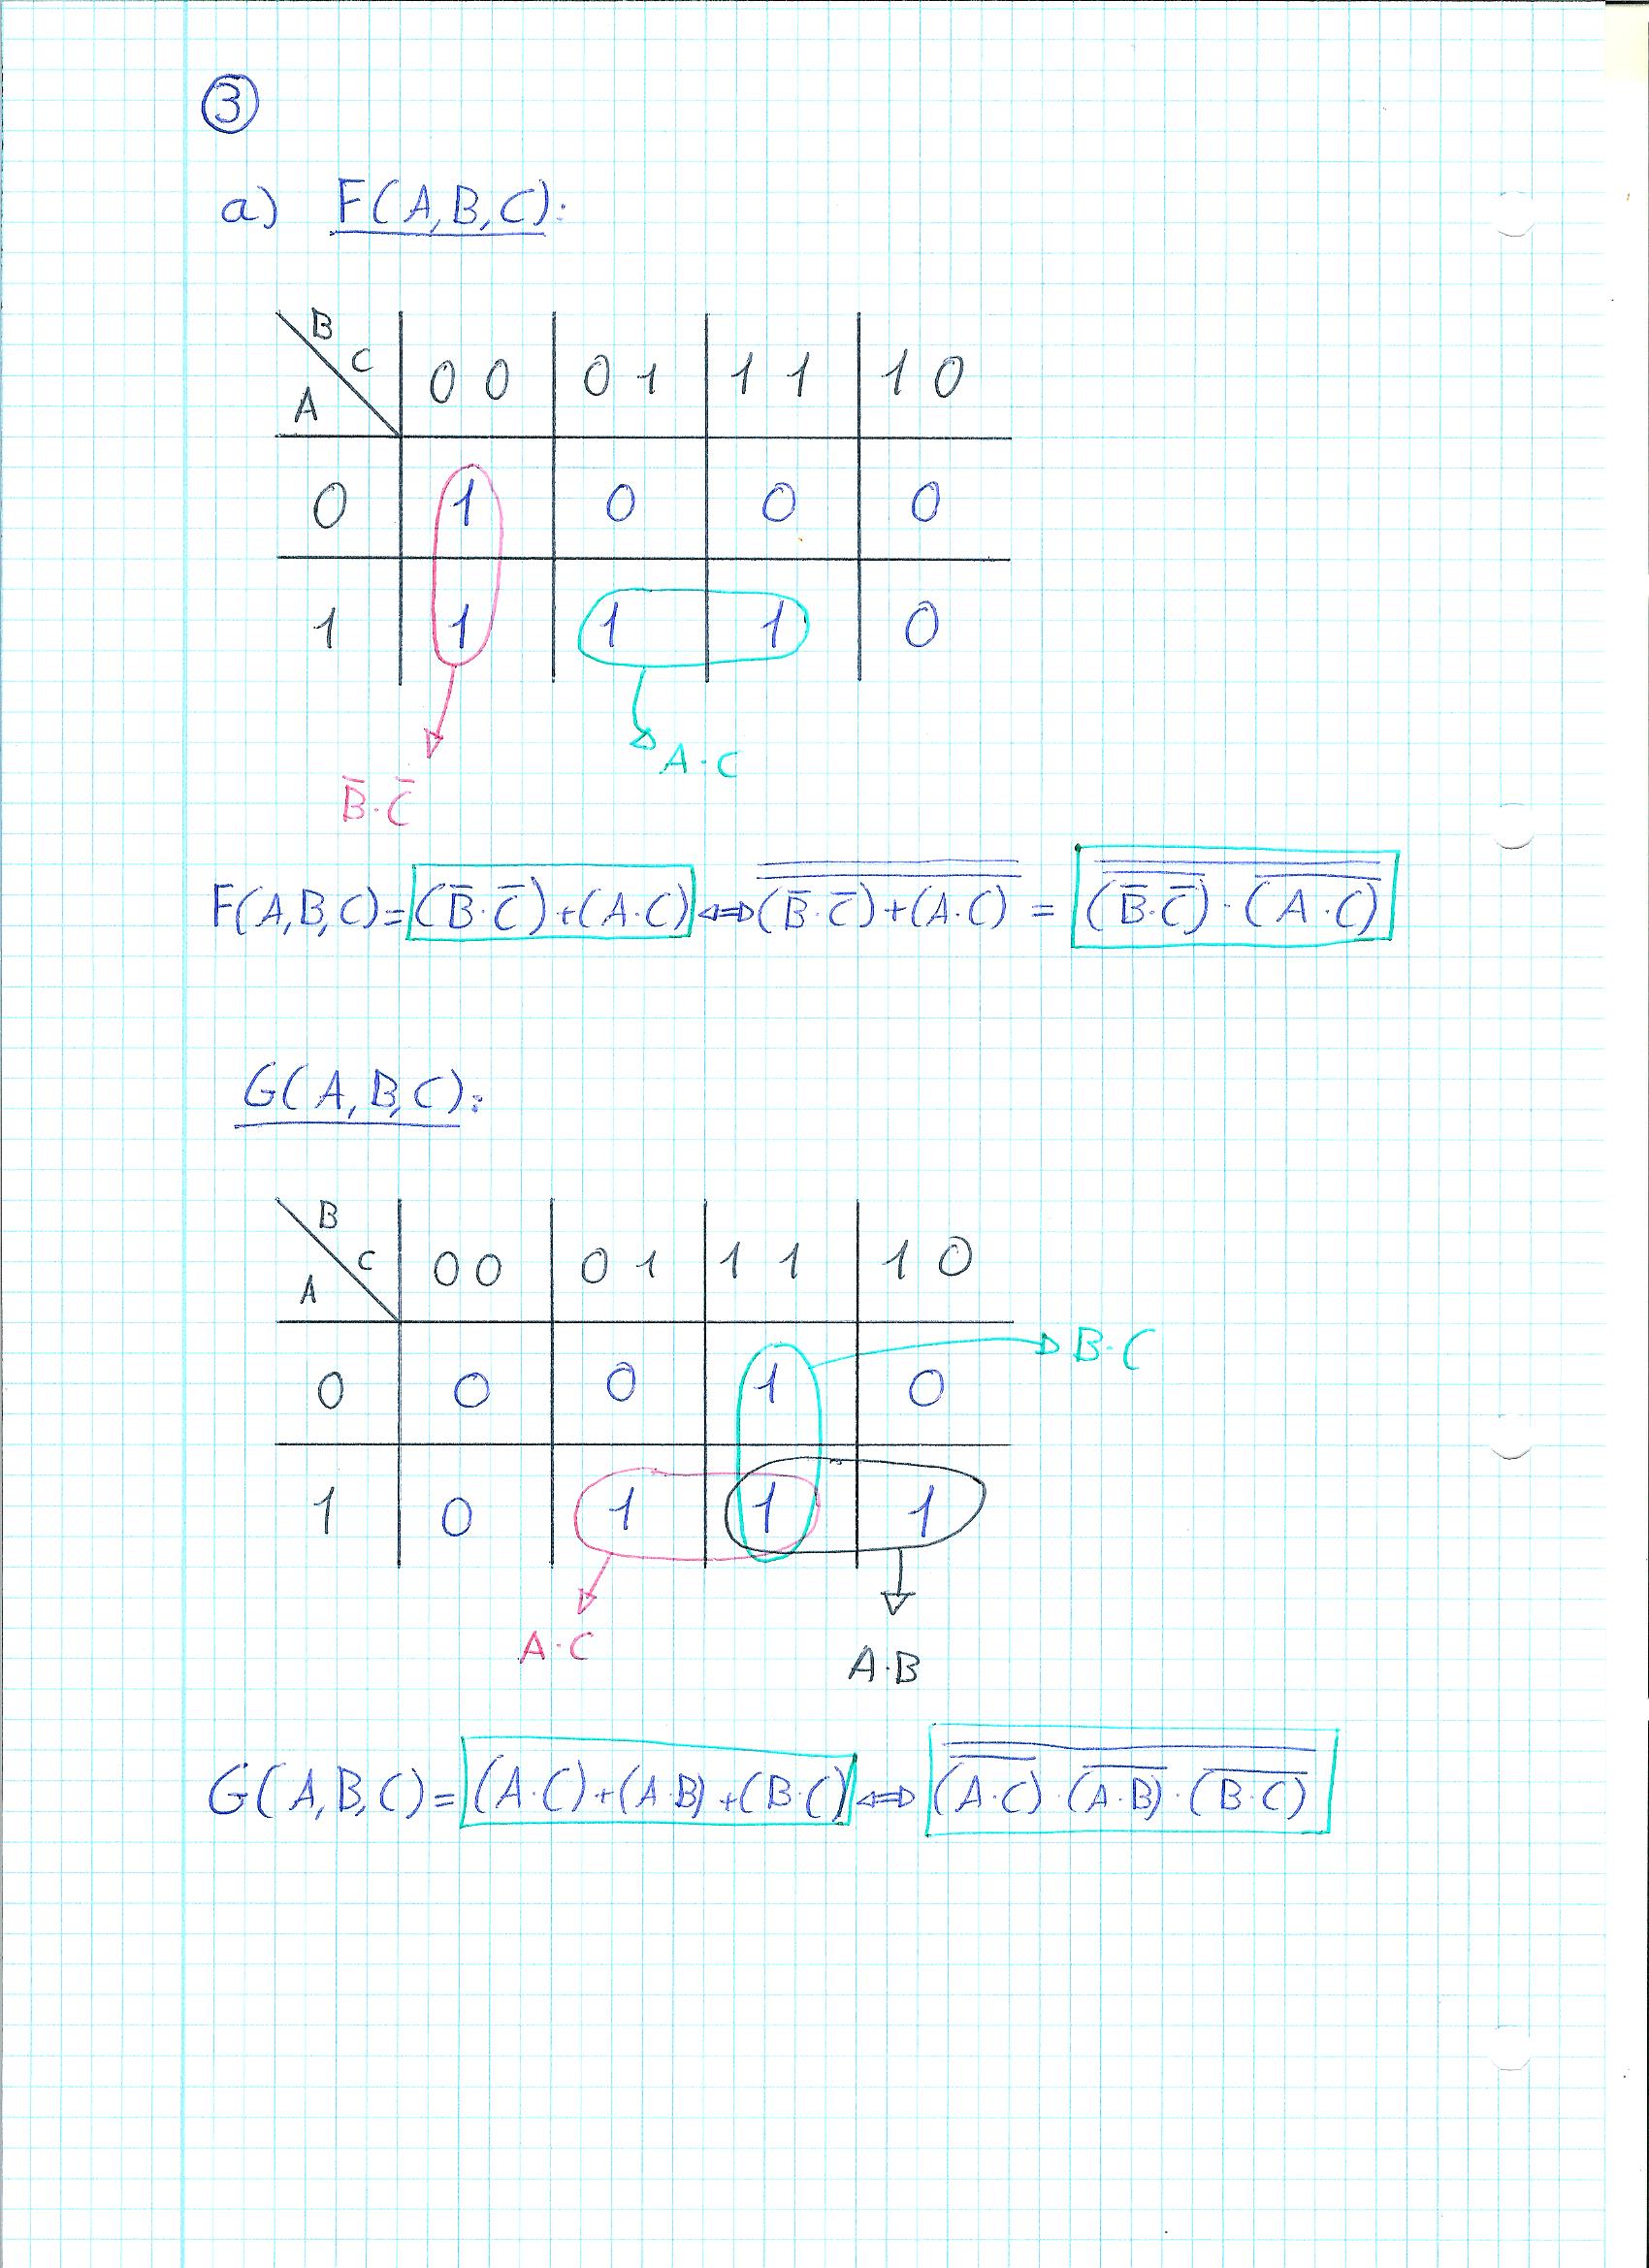 ③
a) F(A,B,C):
B
C
A
0 0 0 1 1 1 1 0
0 1 0 0 0
1 1 1 1 0
A·C
B̅·C̅
F(A,B,C)=(B̅·C̅)+(A·C)⇔(B̅·C̅)+(A·C) = (B̅·C̅)·(A·C)
G(A,B,C):
B
C
A
0 0 0 1 1 1 1 0
B·C
0 0 0 1 0
1 0 1 1 1
A·C
A·B
G(A,B,C)=(A·C)+(A·B)+(B·C)⇔(A·C)·(A·B)·(B·C)